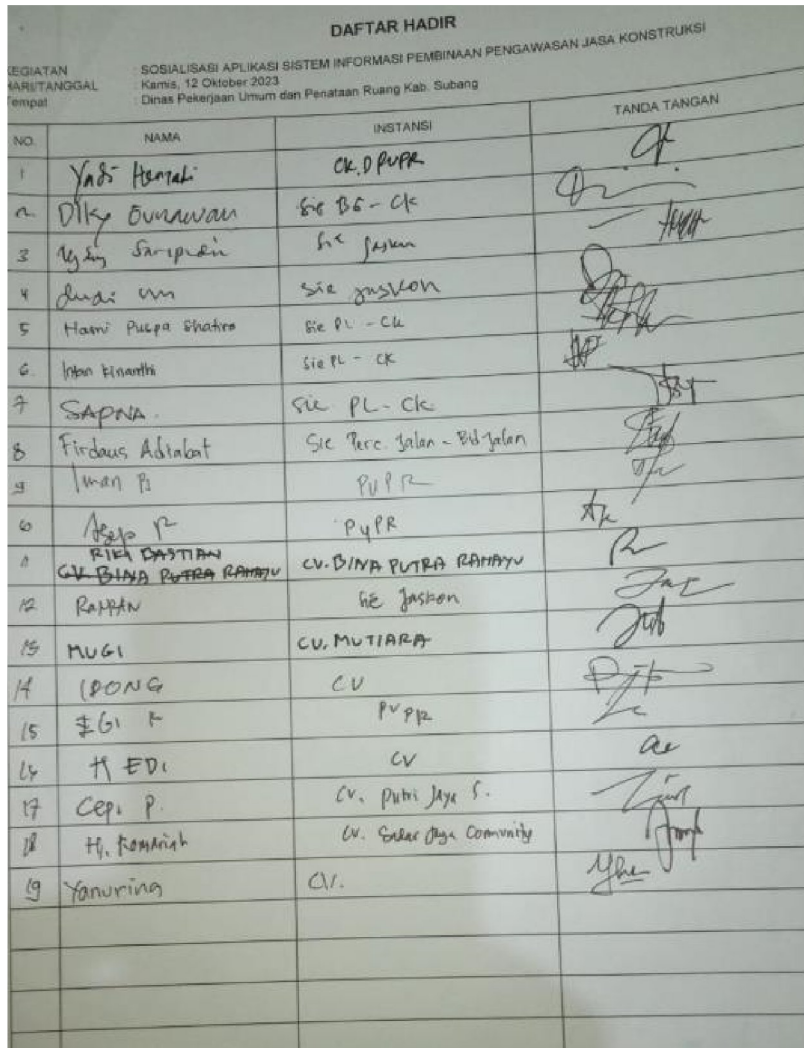 DAFTAR HADIR
KEGIATAN : SOSIALISASI APLIKASI SISTEM INFORMASI PEMBINAAN PENGAWASAN JASA KONSTRUKSI
HARI/TANGGAL : Kamis, 12 Oktober 2023
Tempat : Dinas Pekerjaan Umum dan Penataan Ruang Kab. Subang
NO. NAMA INSTANSI TANDA TANGAN
1 Yadi CK. DPUPR
2. Diky Gunawan Sie BG - CK
3 Saripudin Sie Jaskon
4 Sie Jaskon
5 Hasni Puspa Sie PL - CK
6. Intan Kinanthi Sie PL - CK
7 SAPNA. Sie PL - CK
8 Firdaus Adiabat Sie Perc. Jalan - Bid Jalan
9 Iman PUPR
10 Asep R PUPR
11 RIKI BASTIAN CV. BINA PUTRA RAHAYU
CV. BINA PUTRA RAHAYU
12 Sie Jaskon
13 MUGI CV. MUTIARA
14 IDONG CV
15 EGI PUPR
16 H EDI CV
17 Cepi P. CV. Putri Jaya S.
18 Hj. Komariah CV. Jaya Comunity
19 Yanuring CV.